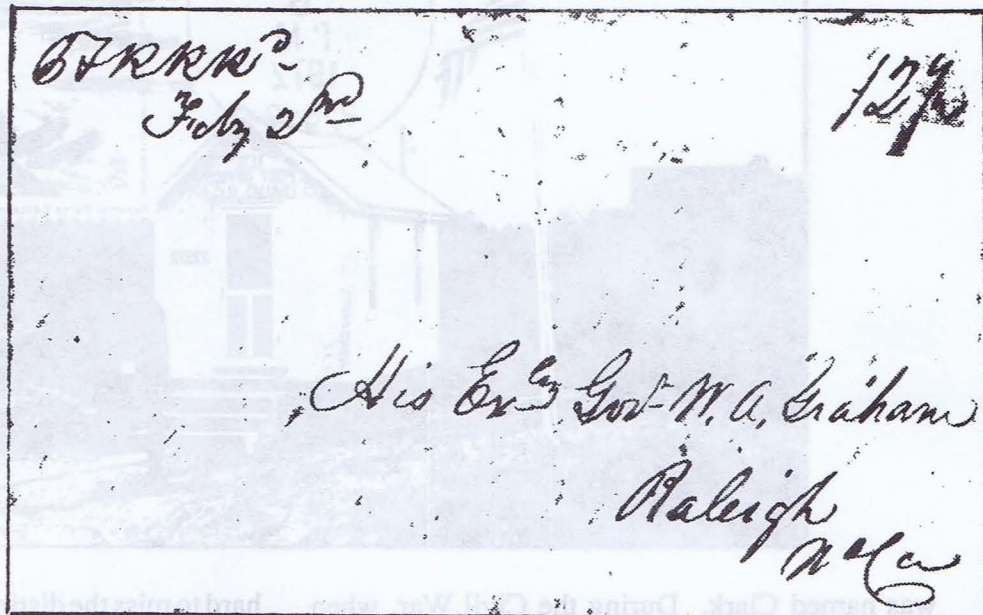 Feby 2nd
12½
His Excy Gov W. A. Graham
Raleigh
N Ca
named Clark. During the Civil War, when
hard to miss the